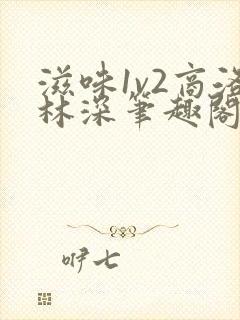 滋味1v2高洛
林深笔趣阁
咿七